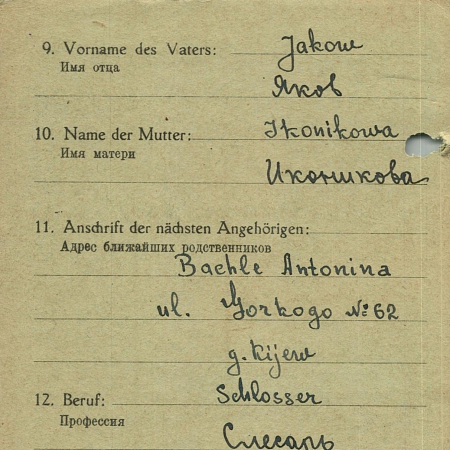 9. Vorname des Vaters: Jakow
Имя отца
Яков
10. Name der Mutter: Ikonikowa
Имя матери
Иконникова
11. Anschrift der nächsten Angehörigen:
Адрес ближайших родственников
Baehle Antonina
ul. Gorkogo № 62
g. Kijew
12. Beruf: Schlosser
Профессия
Слесарь